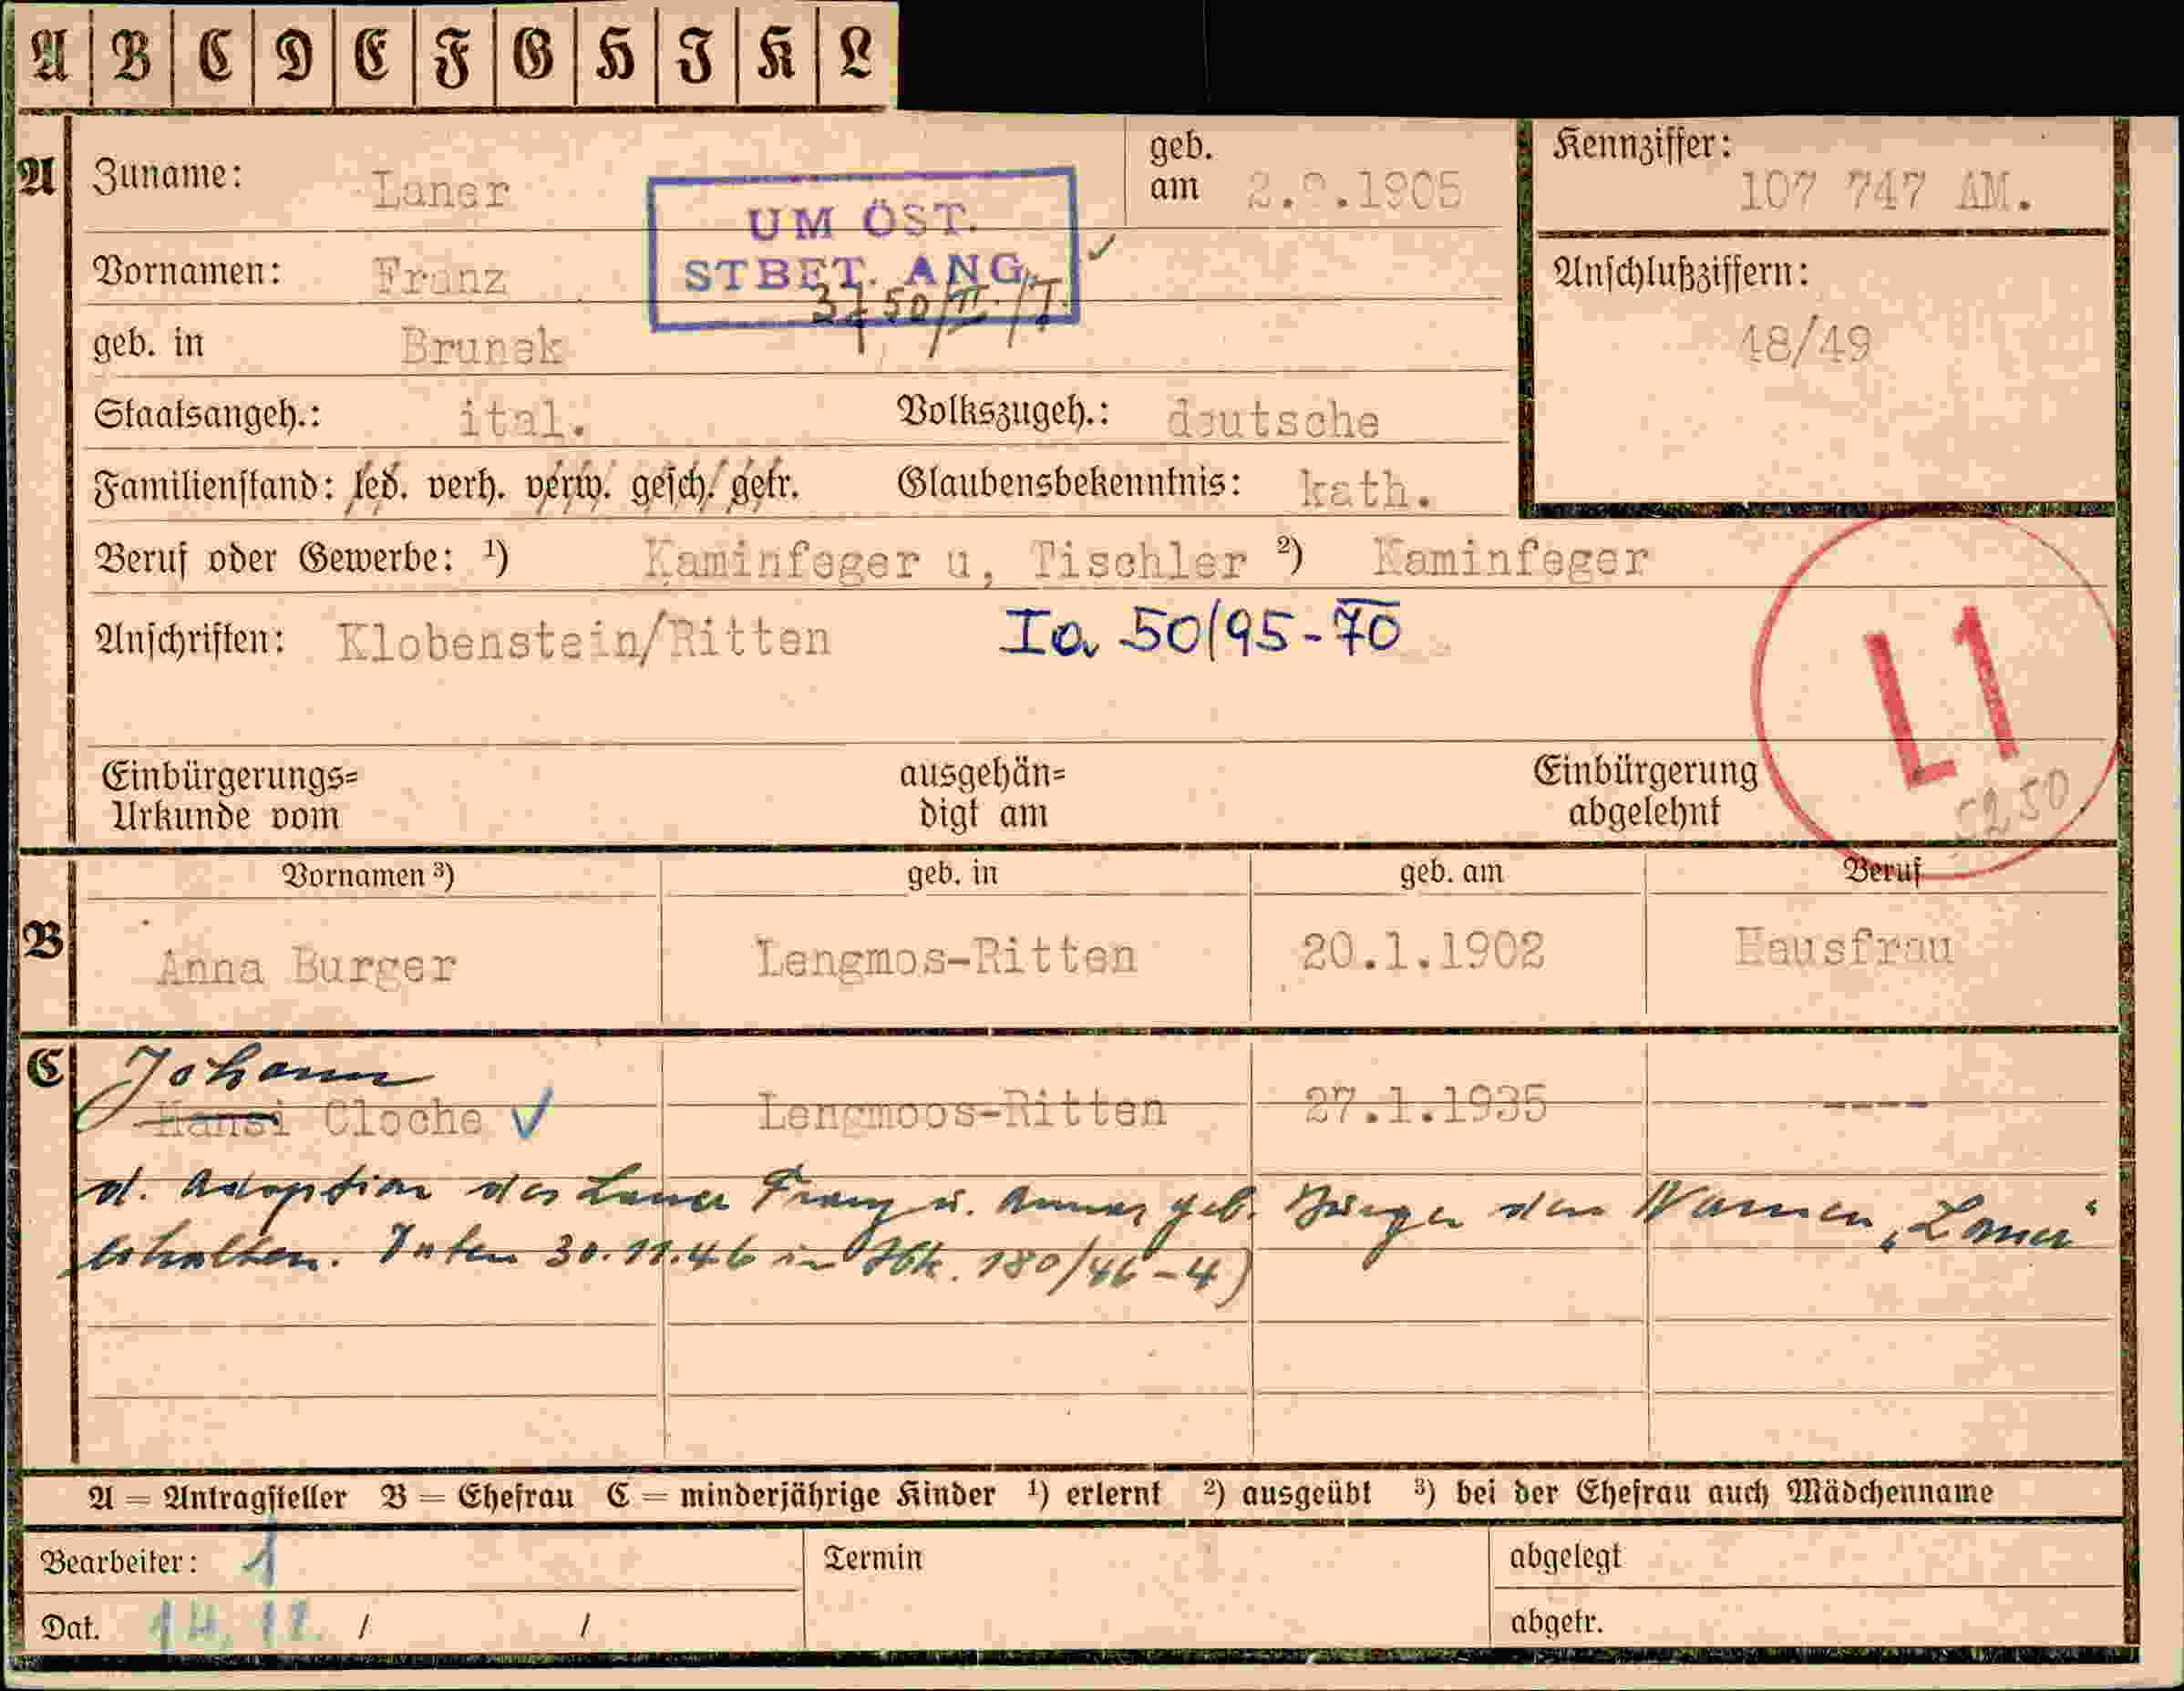 A B C D E F G H I K L
A Zuname: Laner geb. am 2. .1905 Kennziffer: 107 747 AM.
UM ÖST.
STBET. ANG.
Vornamen: Franz Anschlußziffern:
3750/II./I.
geb. in Brunek 48/49
Staatsangeh.: ital. Volkszugeh.: deutsche
Familienstand: led. verh. verw. gesch. getr. Glaubensbekenntnis: kath.
Beruf oder Gewerbe: ¹) Kaminfeger u, Tischler ²) Kaminfeger
Anschriften: Klobenstein/Ritten Ia 50/95-70
L1
Einbürgerungs= ausgehän= Einbürgerung
Urkunde vom digt am abgelehnt 5250
Vornamen ³) geb. in geb. am Beruf
B Anna Burger Lengmos-Ritten 20.1.1902 Hausfrau
C Johann
Hansi Cloche ✓ Lengmoos-Ritten 27.1.1935 ----
d. Adoption des Laner Franz u. Anna geb. Burger den Namen „Laner“
erhalten. 30.11.46 180/46-4)
A = Antragsteller B = Ehefrau C = minderjährige Kinder ¹) erlernt ²) ausgeübt ³) bei der Ehefrau auch Mädchenname
Bearbeiter: 1 Termin abgelegt
Dat. 14. 12. / / abgetr.